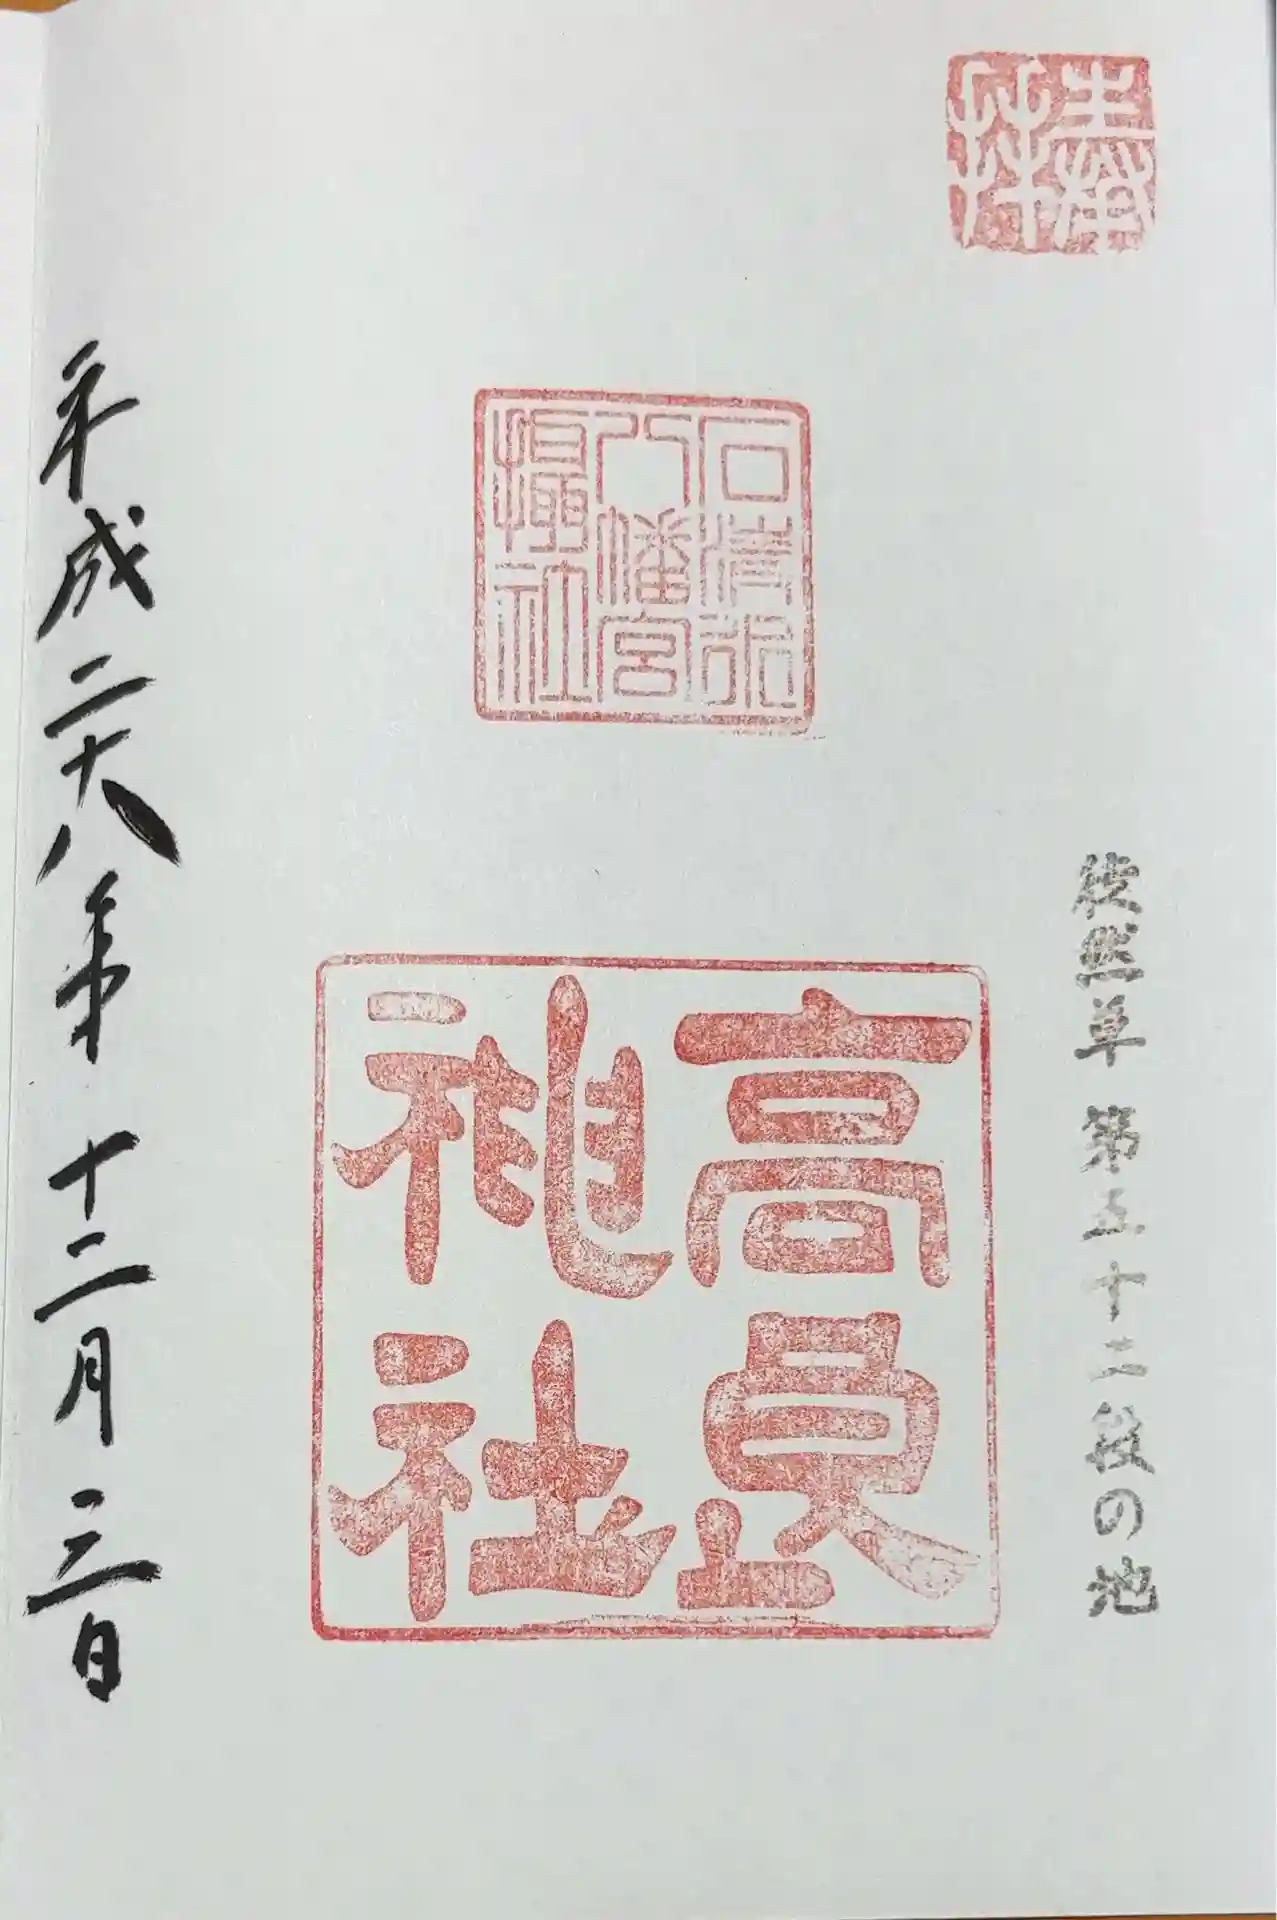 奉拝
徒然草 第五十二段の地
石清水
八幡宮
摂社
高良
神社
平成二十八年 十二月 三日